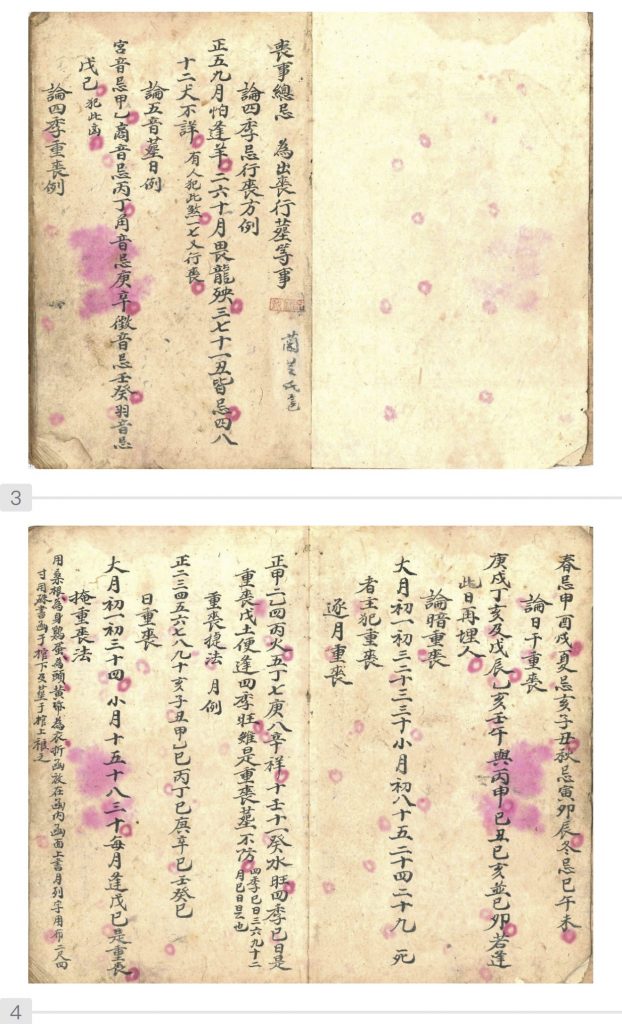 喪事總忌 為出喪行葬等事
論四季忌行喪方例
正五九月怕逢羊二六十月畏龍殃三七十一丑皆忌四八
十二犬不詳 有人犯此煞一七又行喪
論五音葬日例
宮音忌甲乙商音忌丙丁角音忌庚辛徵音忌壬癸羽音忌
戊己 犯此凶
論四季重喪例
3
春忌甲酉戌夏忌亥子丑秋忌寅卯辰冬忌巳午未
論日干重喪
庚戌丁亥及戊辰乙亥壬午與丙申己丑己亥並己卯若逢
此日再埋人
論暗重喪
大月初一初三二十三三十小月初八十五二十四二十九 死
者主犯重喪
逐月重喪
正甲二乙四丙火五丁七庚八辛祥十壬十一癸水旺四季己日是
重喪戊土便逢四季旺雖是重喪葬不防 四季己日三六九十二
月己日是也
重喪捷法 月例
正二三四五六七八九十亥子丑甲乙己丙丁己庚辛己壬癸己
日重喪
大月初一初三十四 小月十五十八三十每月逢戊己是重喪
掩重喪法
用桑根為身鷄蛋為頭黃 為衣折 放在 內 面上書月列字用布二尺四
寸用硃書 于棺下及葬于棺上 之
4